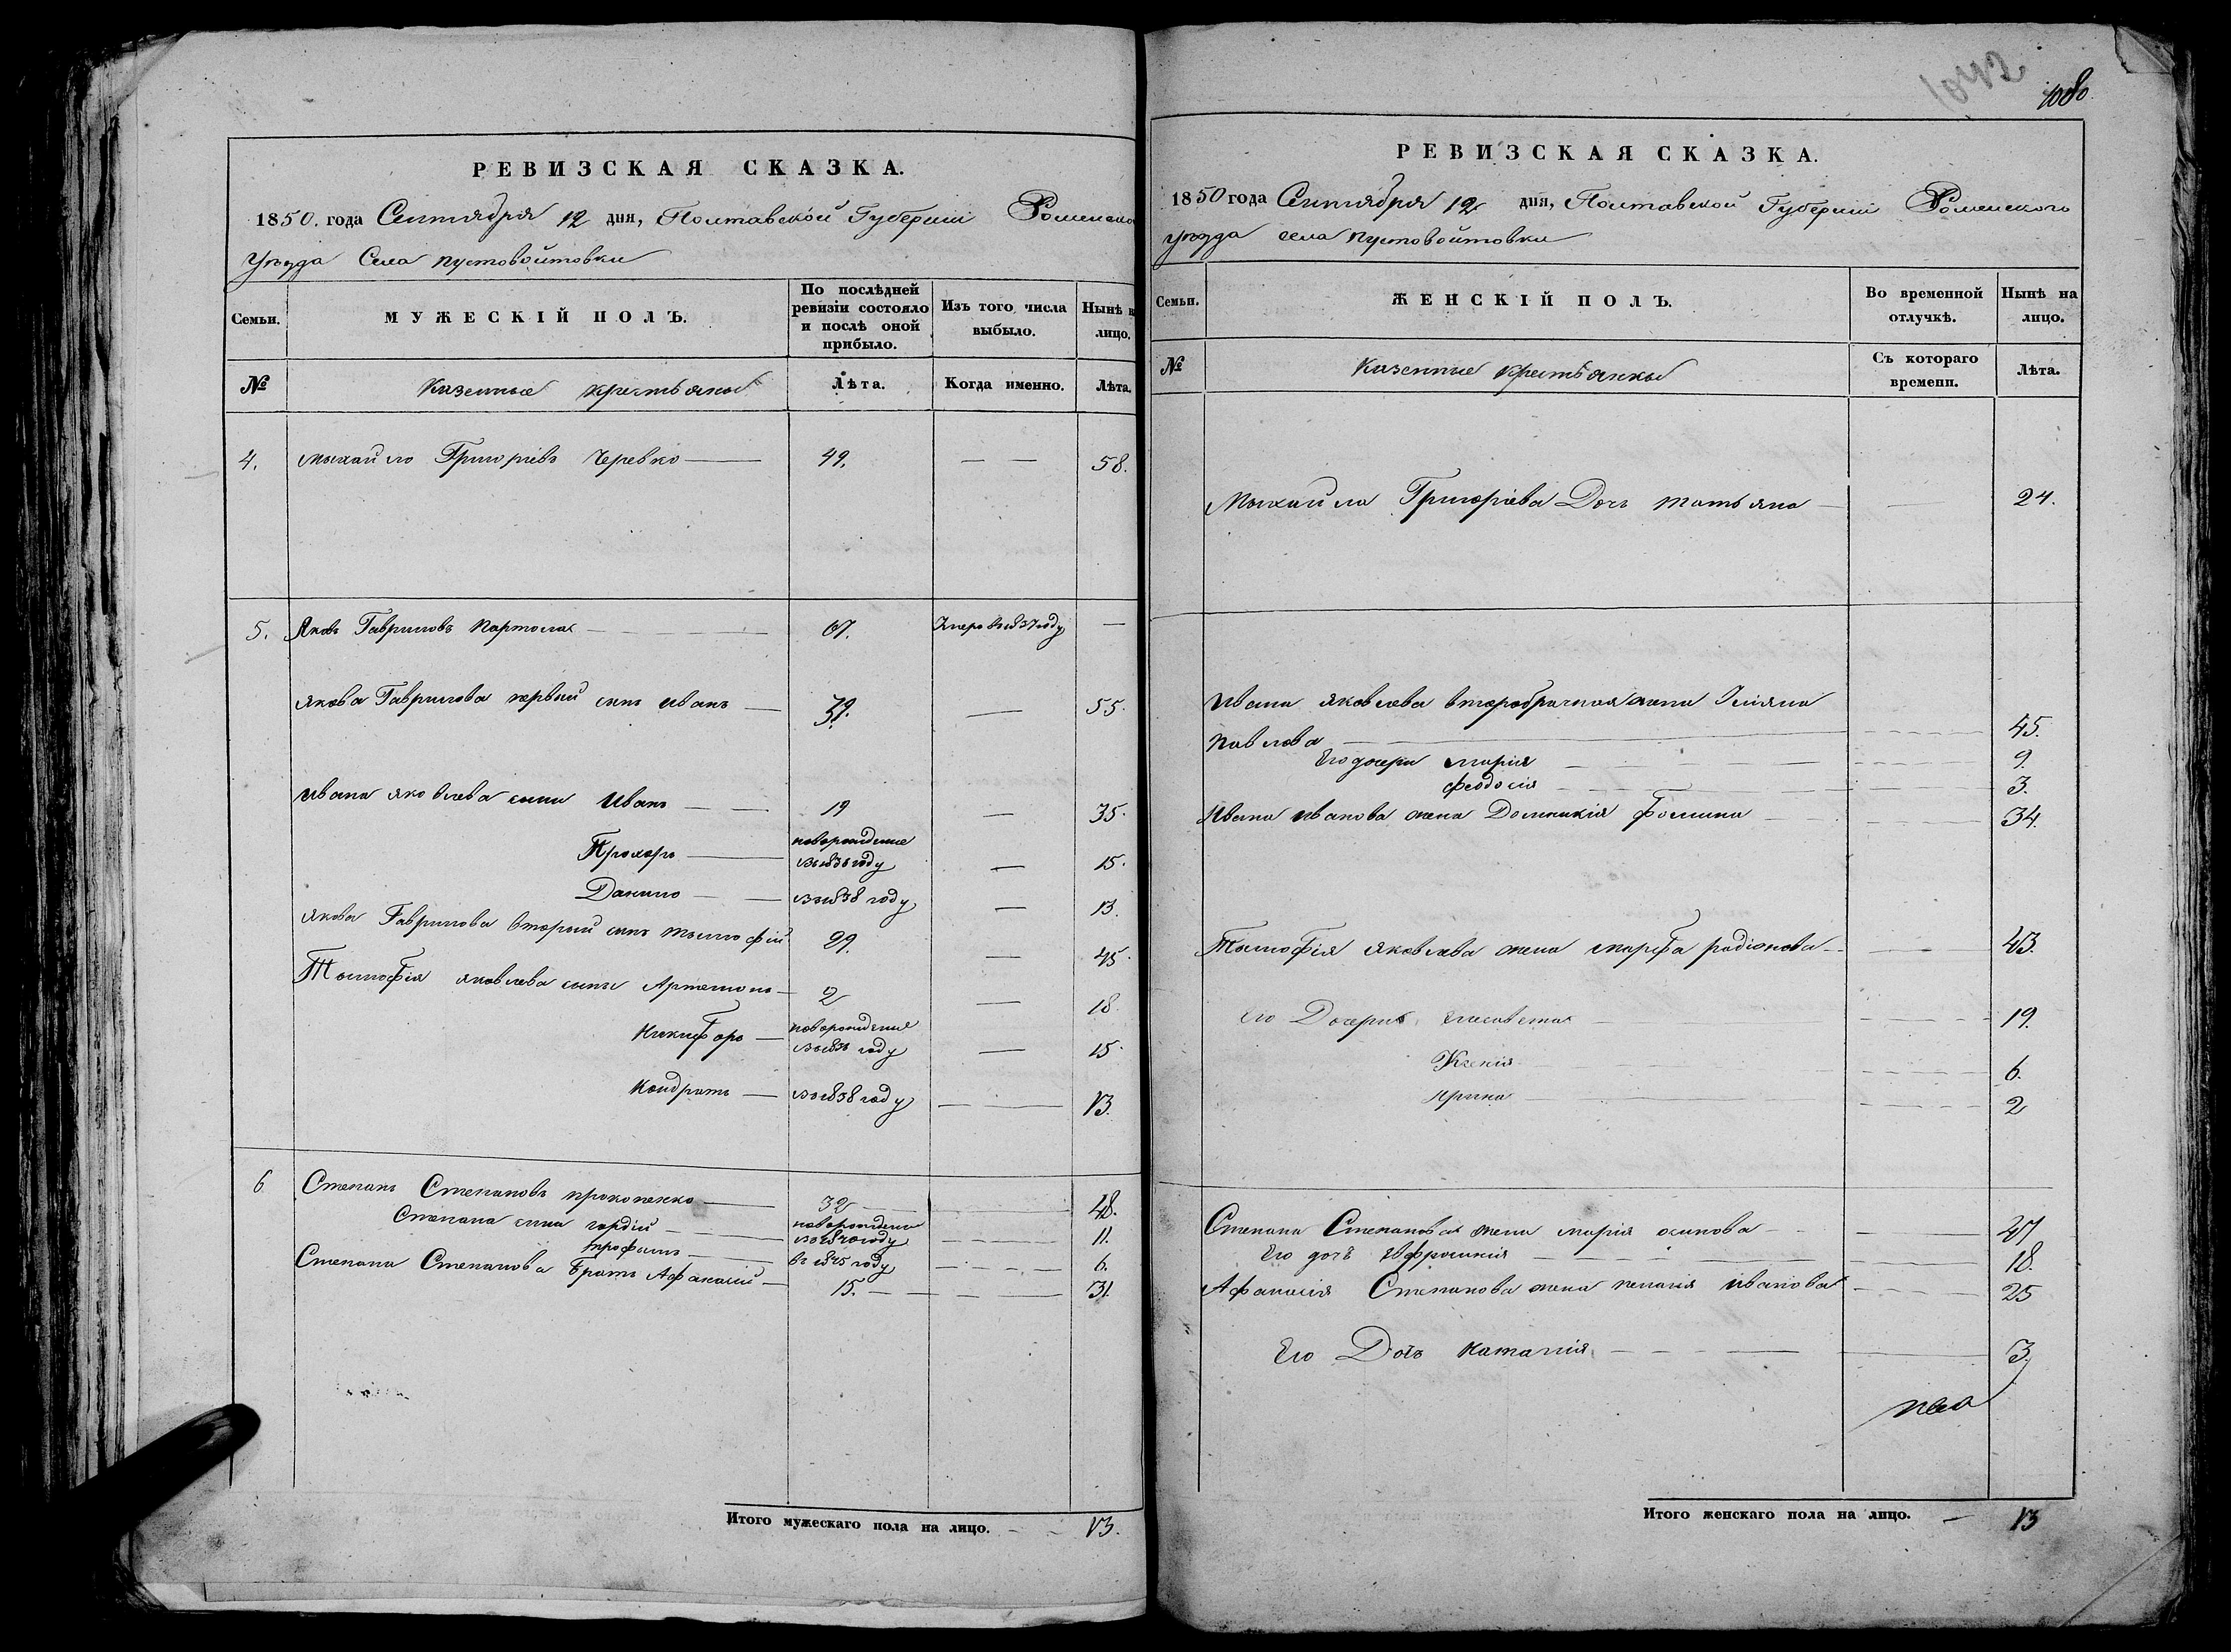 РЕВИЗСКАЯ СКАЗКА.
1850. года Сентября 12 дня, Полтавской Губерніи Роменско
Уѣзда Села пустовойтовки
Семьи.
МУЖЕСКІЙ ПОЛЪ.
По послѣдней ревизіи состояло и послѣ оной прибыло.
Изъ того числа выбыло.
Нынѣ н лицо.
№
Казенные крестьяны
Лѣта.
Когда именно.
Лѣта.
4. михайло Григоріевъ Черевко 49. 58.
5. Яковъ Гавриловъ 67. Умеръ въ 1837 году
Якова Гаврилова первый сынъ иванъ 39. 55.
ивана яковлева сыны Иванъ 19 35.
Прохоръ новорожденые въ 1836 году 15.
Данило въ 1838 году 13.
Якова Гаврилова вторый сынъ тымофій 29. 45.
Тымофія яковлева сыны Артемонъ 2 18
Никифоръ новорожденые въ 1836 году 15.
Кондратъ въ 1838 году 13.
6 Степанъ Степановъ прокопенко 32 48.
Степана сыны гордій новорожденые въ 1840 году 11.
трофимъ въ 1845 году 6.
Степана Степанова братъ Афанасій 15. 31.
Итого мужескаго пола на лицо. 13.
1042
1080.
РЕВИЗСКАЯ СКАЗКА.
1850 года Сентября 12 дня, Полтавской Губерніи Роменского
уѣзда села пустовойтовки
Семьи.
ЖЕНСКІЙ ПОЛЪ.
Во временной отлучкѣ.
Нынѣ на лицо.
№
Казенные крестьянки
Съ котораго времени.
Лѣта.
Михайла Григоріева Дочь татьяна 24.
Ивана яковлева второбрачная жена
павлова 45.
Его дочери марія 9.
феодосія 3.
Ивана иванова жена Домникія фомина 34.
Тымофія яковлева жена марфа радіонова 43.
его Дочери елисавета 19.
Ксенія 6.
ирина 2
Степана Степанова жена марія осипова 47
Его дочь Евфросинія 18.
Афанасія Степанова жена пелагія иванова 25
Его Дочь наталия 3.
Итого женскаго пола на лицо. 13